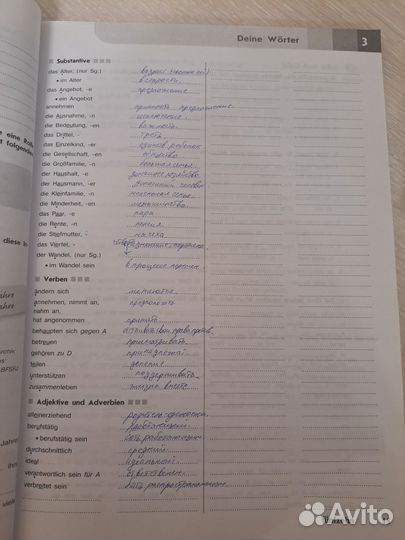 Deine Wörter 3
Substantive
das Alter, (nur Sg.) возраст
• im Alter в старости
das Angebot, -e предложение
• ein Angebot
annehmen принимать предложение
die Ausnahme, -n исключение
die Bedeutung, -en важность
das Drittel, - треть
das Einzelkind, -er единств. ребенок
die Gesellschaft, -en общество
die Großfamilie, -n большая семья
der Haushalt, -e домашнее хозяйство
der Hausmann, -er домашний
die Kleinfamilie, -n маленькая семья
die Minderheit, -en меньшинство
das Paar, -e пара
die Rente, -n пенсия
die Stiefmutter, ¨ мачеха
das Viertel, -
der Wandel, (nur Sg.)
• im Wandel sein в процессе
Verben
ändern sich меняться
annehmen, nimmt an, предполагать
nahm an,
hat angenommen принять
behaupten sich gegen A
betreuen присматривать
gehören zu D принадлежать
teilen делить
unterstützen поддерживать
zusammenleben жизнь вместе
Adjektive und Adverbien
alleinerziehend
berufstätig работающий
• berufstätig sein быть работающим
durchschnittlich средний
ideal идеальный
verantwortlich sein für A ответствен.
verbreitet sein быть распространенным
eine Rolle
t folgenden
diese in
ahre
ahre
BFSFJ
Jahre
Avito